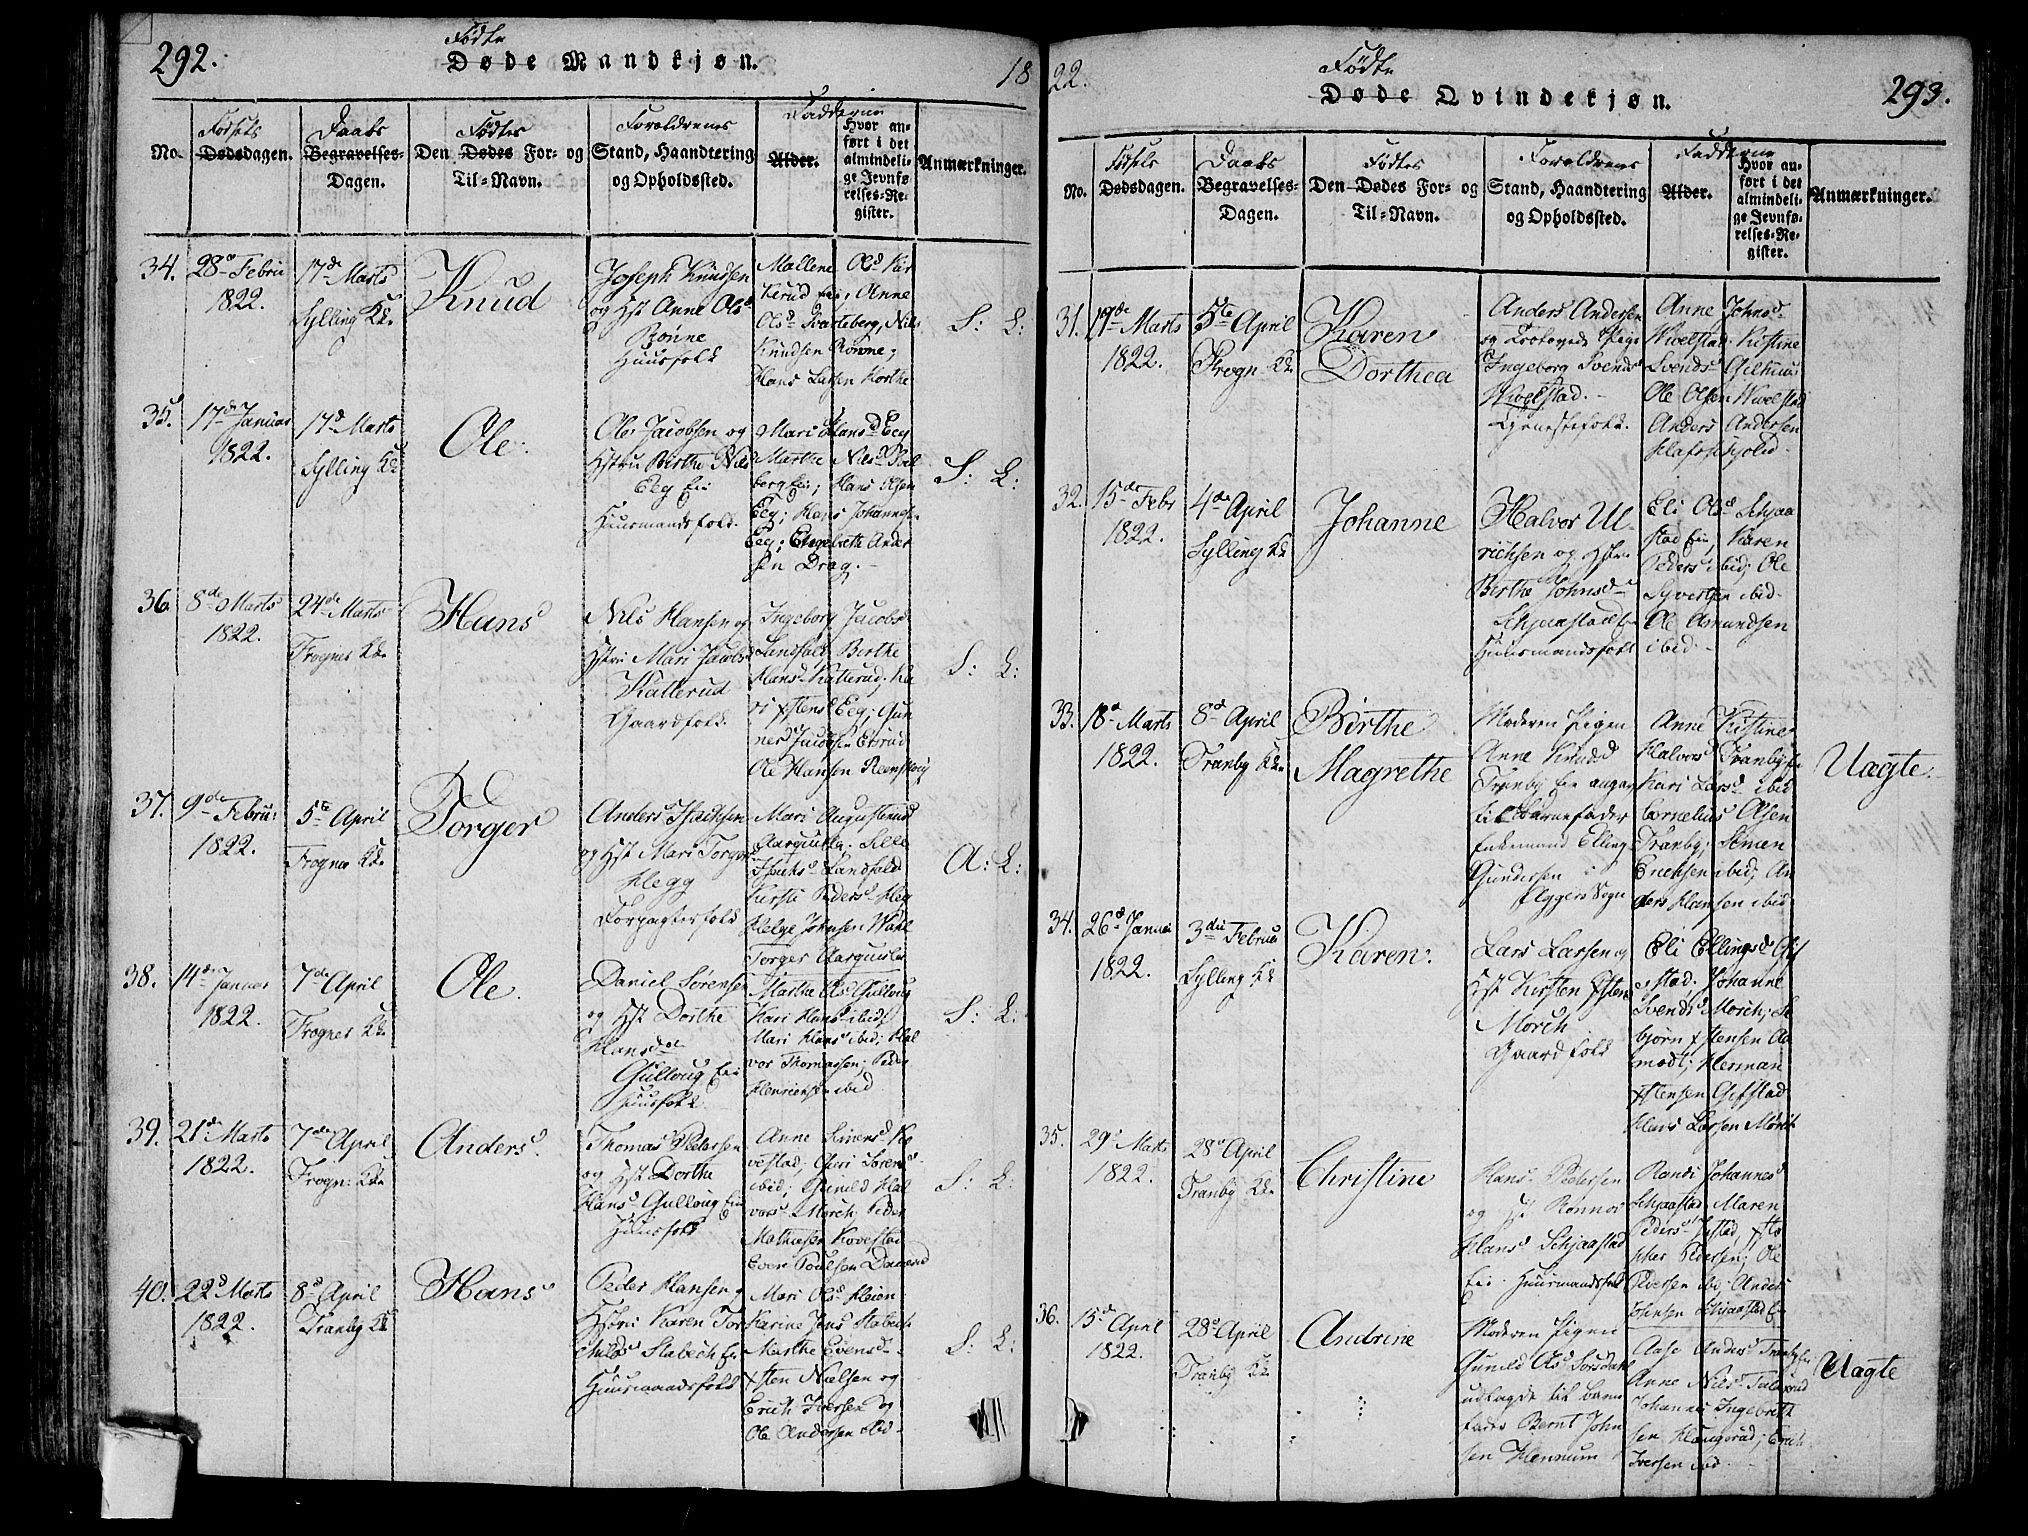 292.
Fødte
Døde Mandkjøn.
18
No.
Fødsels
Dødsdagen.
Daabs
Begravelses-
Dagen.
Fødtes
Den Dødes For- og
Til-Navn.
Forældrenes
Stand, Haandtering
og Opholdssted.
Fadderne
Alder.
Hvor an-
ført i det
almindeli-
ge Jevnfø-
relses-Re-
gister.
Anmærkninger.
34.
28de Febru
1822.
17de Marts
Sylling K
Knud
Joseph Knudsen
og Hst Anne Olsd
Rønne
Huusfolk
Mallene Olsd Kir
kerud Eie; Anne
Olsd Svarteberg, Nils
Knudsen Rønne;
Hans Larsen Korthe
S: L:
35.
17de Januar
1822.
17d Marts
Sylling K
Ole.
Ole Jacobsen og
Hstru Birthe Nils
Eeg Eie
Huusmandsfolk.
Mari Hansd Eeg
Marthe Nilsd
berg Eie; Hans Olsen
Eeg; Hans Johannes
Eeg; Engebrethe Ander
sen Drag.
S: L:
36.
8de Marts
1822.
24de Marts
Frogner K
Hans
Nils Hansen og
Hstru Mari Jacobsd
Kallerud
Gaardfolk.
Ingeborg Jacobs
Landfald Birthe
Hans Kallerud; Ka
ri Estensd Eeg; Gun
ner Jacobsen
Ole Hansen Reenskoug
S: L:
37.
9de Febru:
1822.
5te April
Frogner K
Torger
Anders Isacksen
og Hst Mari Torger
Hegg
Forpagterfolk
Mari Augustinud
Isachs Landfald
Kirsti Pedersd Heg
Helge Johnsen
Torger
A: L:
38.
14de Januar
1822.
7de April
Frogner K
Ole.
Daniel Sørensen
og Hst Dorthe
Hansdat
Gulloug Eie
Huusfolk.
Marthe Olsd Gulloug
Kari Hans ibid;
Mari Hansd ibid; Hal
vor Thomassen; Peder
Henriksen ibid
S: L:
39.
21de Marts
1822.
7de April
Frogn: K
Anders.
Thomas Pedersen
og Hst Dorthe
Hans Gulloug Eie
Huusfolk
Anne Sivers Ko
vestad; Sørens
ibid; Gunild Hal
vors Morch; Peder
Mathiesen Kovestad
Even Poulsen
S: L:
40.
22d Marts
1822.
8d April
Tranby K
Hans
Peder Hansen
Hstru Karen Tor
childs Stabech Eie
Huusmandsfolk
Mari Olsd
Karine Jens Stabech
Marthe Evensd
Esten Nielsen og
Erich Iversen og
Ole Andersen ibid
S: L:
22.
Fødte
Døde Qvindekjøn.
293.
No.
Fødsels
Dødsdagen.
Daabs
Begravelses-
Dagen.
Fødtes
Den Dødes For- og
Til-Navn.
Forældrenes
Stand, Haandtering
og Opholdssted.
Fadderne
Alder.
Hvor an-
ført i det
almindeli-
ge Jevnfø-
relses-Re-
gister.
Anmærkninger.
31.
19de Marts
1822.
5te April
Frogn K
Karen
Dorthea
Anders Andersen
og Trolovede Pige
Ingeborg Svends
Wivelstad.
Tjenestefolk.
Anne Johnsd
Wivelstad. Kistine
Svends Gilhuus
Ole Olsen Wivelstad
Anders Andersen
Hafnskjold.
32.
15de Febr
1822.
4de April
Sylling K
Johanne
Halvor Ul-
richsen og Hstr
Birthe Johnsd
Schjaastad Eie
Huusmandsfolk
Eli Olsd Schjaa
stad Eie; Karen
Peders ibid; Ole
Syvertsen ibid
Ole Amundsen
ibid.
33.
18d Marts
1822.
8d April
Tranby K
Birthe
Magrethe
Moderen Pigen
Anne Knudsd
Tranby Eie angav
til Barnefader
Enkemand Elling
Gundersen i
Eggers Sogn
Anne Kistine
Halvors Tranby Eie
Kari Larsd ibid
Cornelius Olsen
Tranby; Simen
Erichsen ibid; An
ders Hansen ibid
Uægte.
34.
26d Janua
1822.
3die Februa
Sylling K
Karen.
Lars Larsen og
Hst Kirsten Estens
Morch
Gaardfolk
Eli Ellingsd Gif
stad; Johanne
Svends Morch;
bjørn Estensen Aa
modt; Herman
Estensen Gifstad
Hans Larsen Morch
35.
29d Marts
1822.
28d April
Tranby K
Christine
Hans Pedersen
og Hst Rønnov
Hansd Schjaastad
Eie. Huusmandsfolk
Randi Johannes
Schjaastad Maren
Peders Justad,
pher Pedersen; Ole
Iversen ibid; Anders
Johnsen Schjaastad Eie
36.
15de April
1822.
28d April
Tranby K
Andrine
Moderen Pigen
Gunild Olsd Sørsdahl
udlagde til Barne
fader Bernt John
sen Hennum
Aase Anders Tranby Eie
Anne Nils
Johannes Ingebreth
sen Haugerud; Erich
Iversen ibid
Uægte